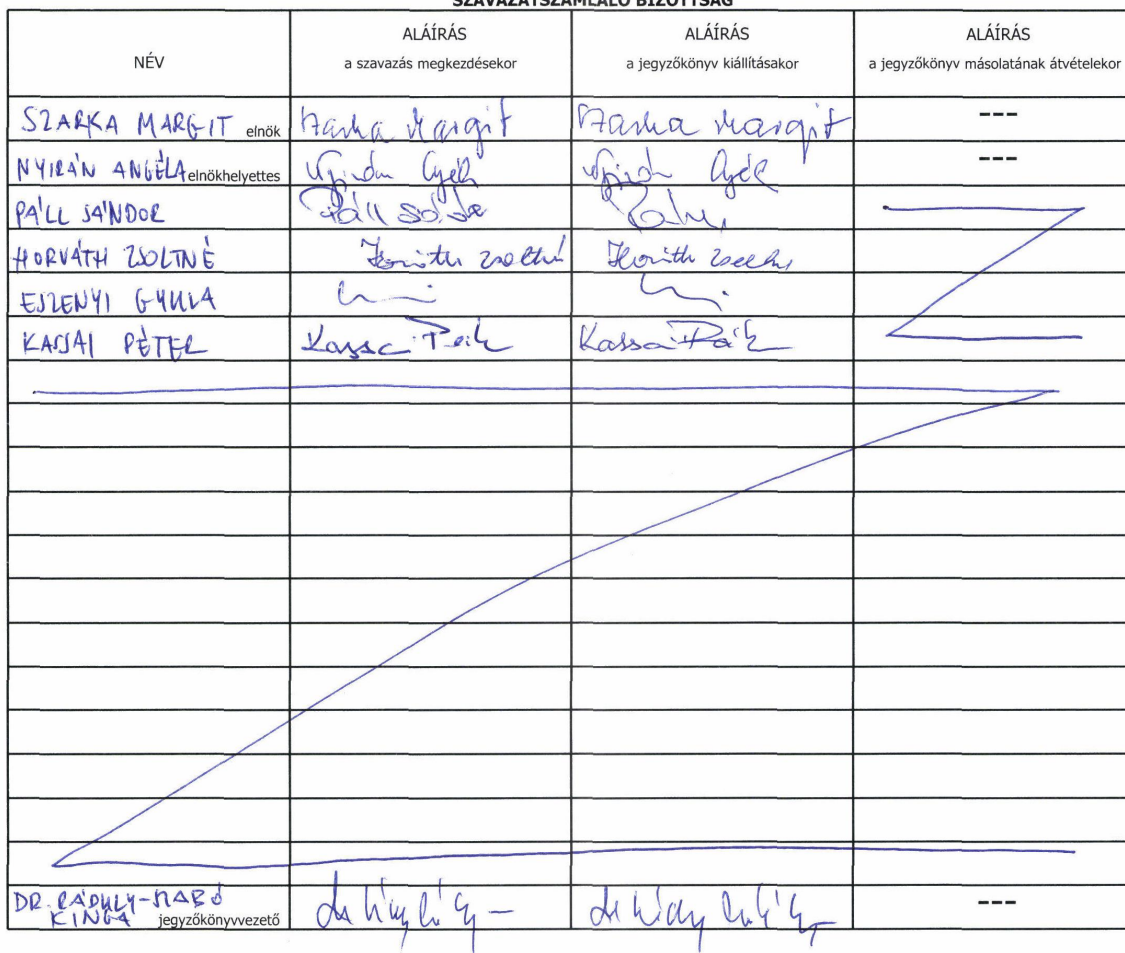 SZAVAZATSZÁMLÁLÓ BIZOTTSÁG
NÉV
ALÁÍRÁS
a szavazás megkezdésekor
ALÁÍRÁS
a jegyzőkönyv kiállításakor
ALÁÍRÁS
a jegyzőkönyv másolatának átvételekor
SZARKA MARGIT elnök Szarka Margit Szarka Margit ---
NYIRÁN ANGÉLA elnökhelyettes ---
PÁLL SÁNDOR Páll
HORVÁTH ZSOLTNÉ Horváth Zsoltné Horváth
ESZENYI GYULA
KASSAI PÉTER Kassai Kassai
DR. RÁDULY-SZABÓ
KINGA jegyzőkönyvvezető ---